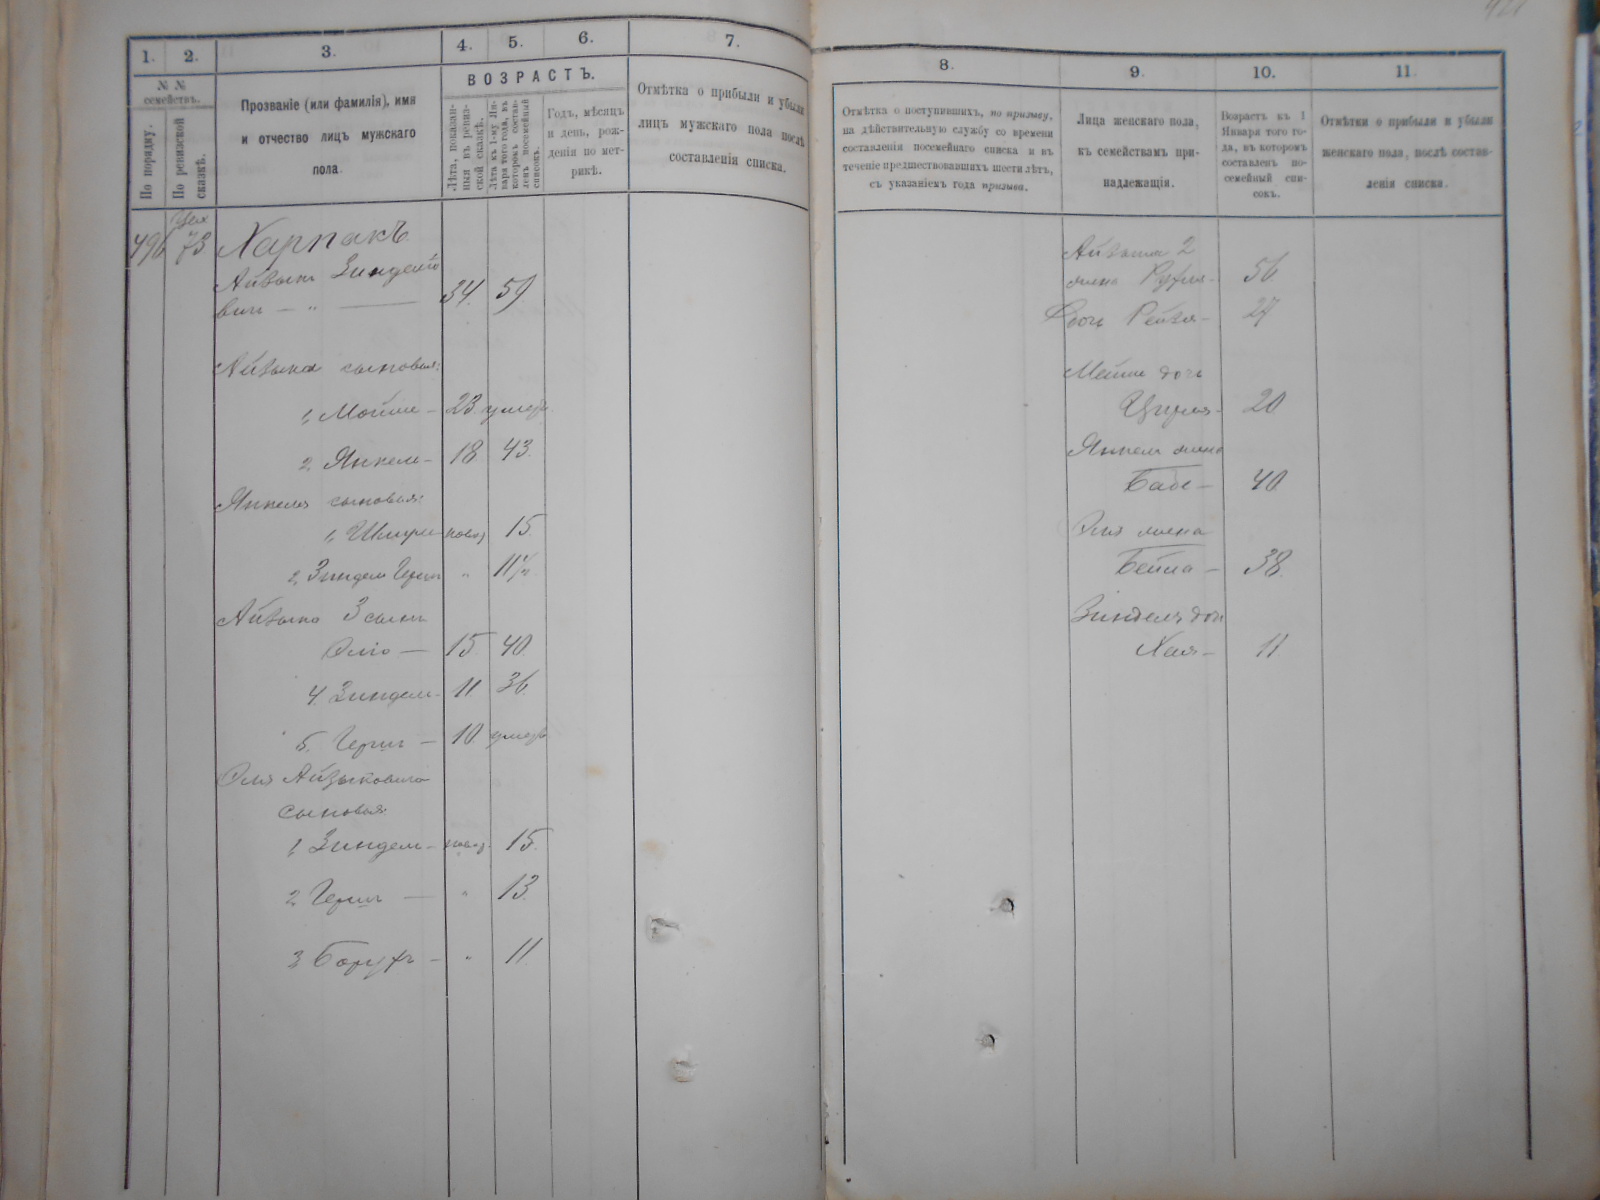 1.
2.
3.
4.
5.
6.
7.
№ №
семействъ.
По порядку.
По ревизской
сказкѣ.
Прозваніе (или фамилія), имя
и отчество лицъ мужскаго
пола.
ВОЗРАСТЪ.
Лѣта, показан-
ныя въ ревиз-
ской сказкѣ.
Лѣта къ 1-му Ян-
варя того года, въ
которомъ состав-
ленъ посемейный
списокъ.
Годъ, мѣсяцъ
и день, рож-
денія по мет-
рикѣ.
Отмѣтка о прибыли и убыли
лицъ мужскаго пола послѣ
составленія списка.
496 73 Харпакъ
Айзыкъ Зинделіо
вичъ — „ — 34. 59
Айзыка сыновья:
1, Мойше — 23. умеръ.
2, Янкель — 18 43.
Янкеля сыновья:
15.
2, Зиндель Герш „ 11½
Айзыка 3 сынъ
Эліо — 15. 40.
4. Зиндель — 11. 36.
5. Гершъ — 10. умеръ
Эля Айзыковича
сыновья:
1, Зиндель — 15.
2, Гершъ — „ 13.
3, Борухъ — „ 11
8.
9.
10.
11.
Отмѣтка о поступившихъ, по призыву,
на дѣйствительную службу со времени
составленія посемейнаго списка и въ
теченіе предшествовавшихъ шести лѣтъ,
съ указаніемъ года призыва.
Лица женскаго пола,
къ семействамъ при-
надлежащія.
Возрастъ къ 1
Января того го-
да, въ которомъ
составленъ по-
семейный спи-
сокъ.
Отмѣтки о прибыли и убыли
женскаго пола, послѣ состав-
ленія списка.
Айзыка 2
жена 56.
Дочь Рейзя — 27
Мейше дочь
Цирля — 20
Янкеля жена
Бабе — 40
Эля жена
Бейла — 38.
Зинделя доч
Хая — 11